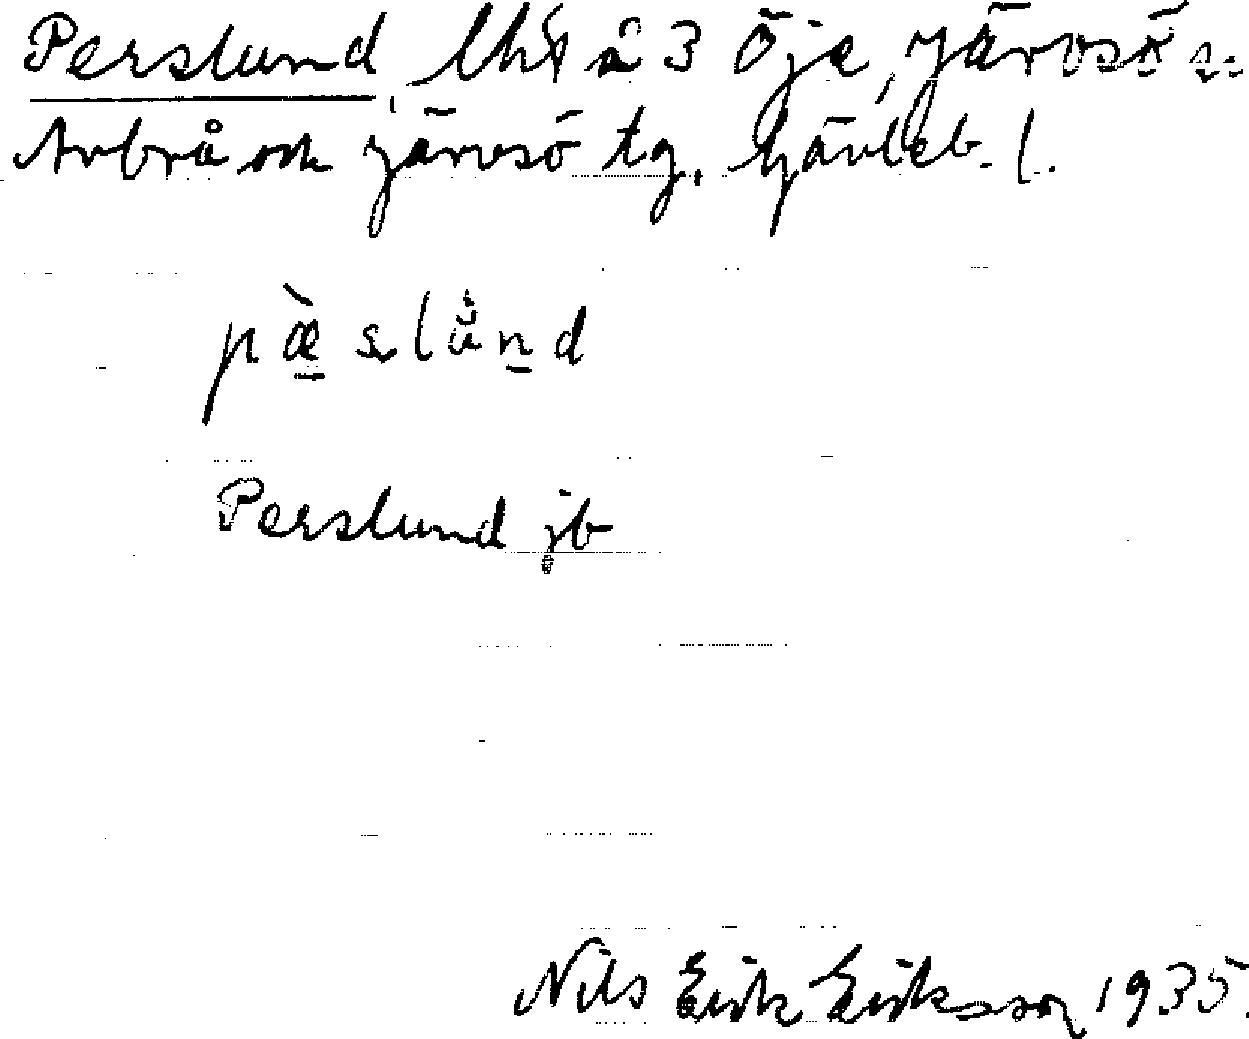 Perslund, lht å 3 Öje, Järvsö sn
Arbrå och Järvsö tg. Gävleb. l.
pæ̀slånd
Perslund jb
Nils Erik Eriksson 1935.